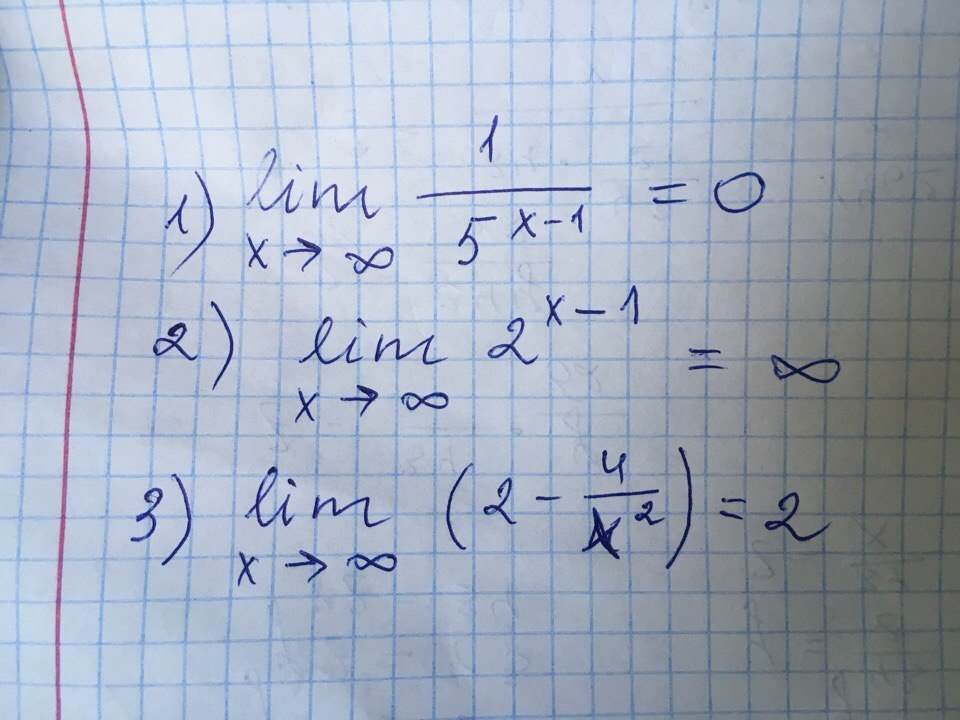 1) lim x→∞ 1/5^(x-1) = 0
2) lim x→∞ 2^(x-1) = ∞
3) lim x→∞ (2 - 4/x^2) = 2